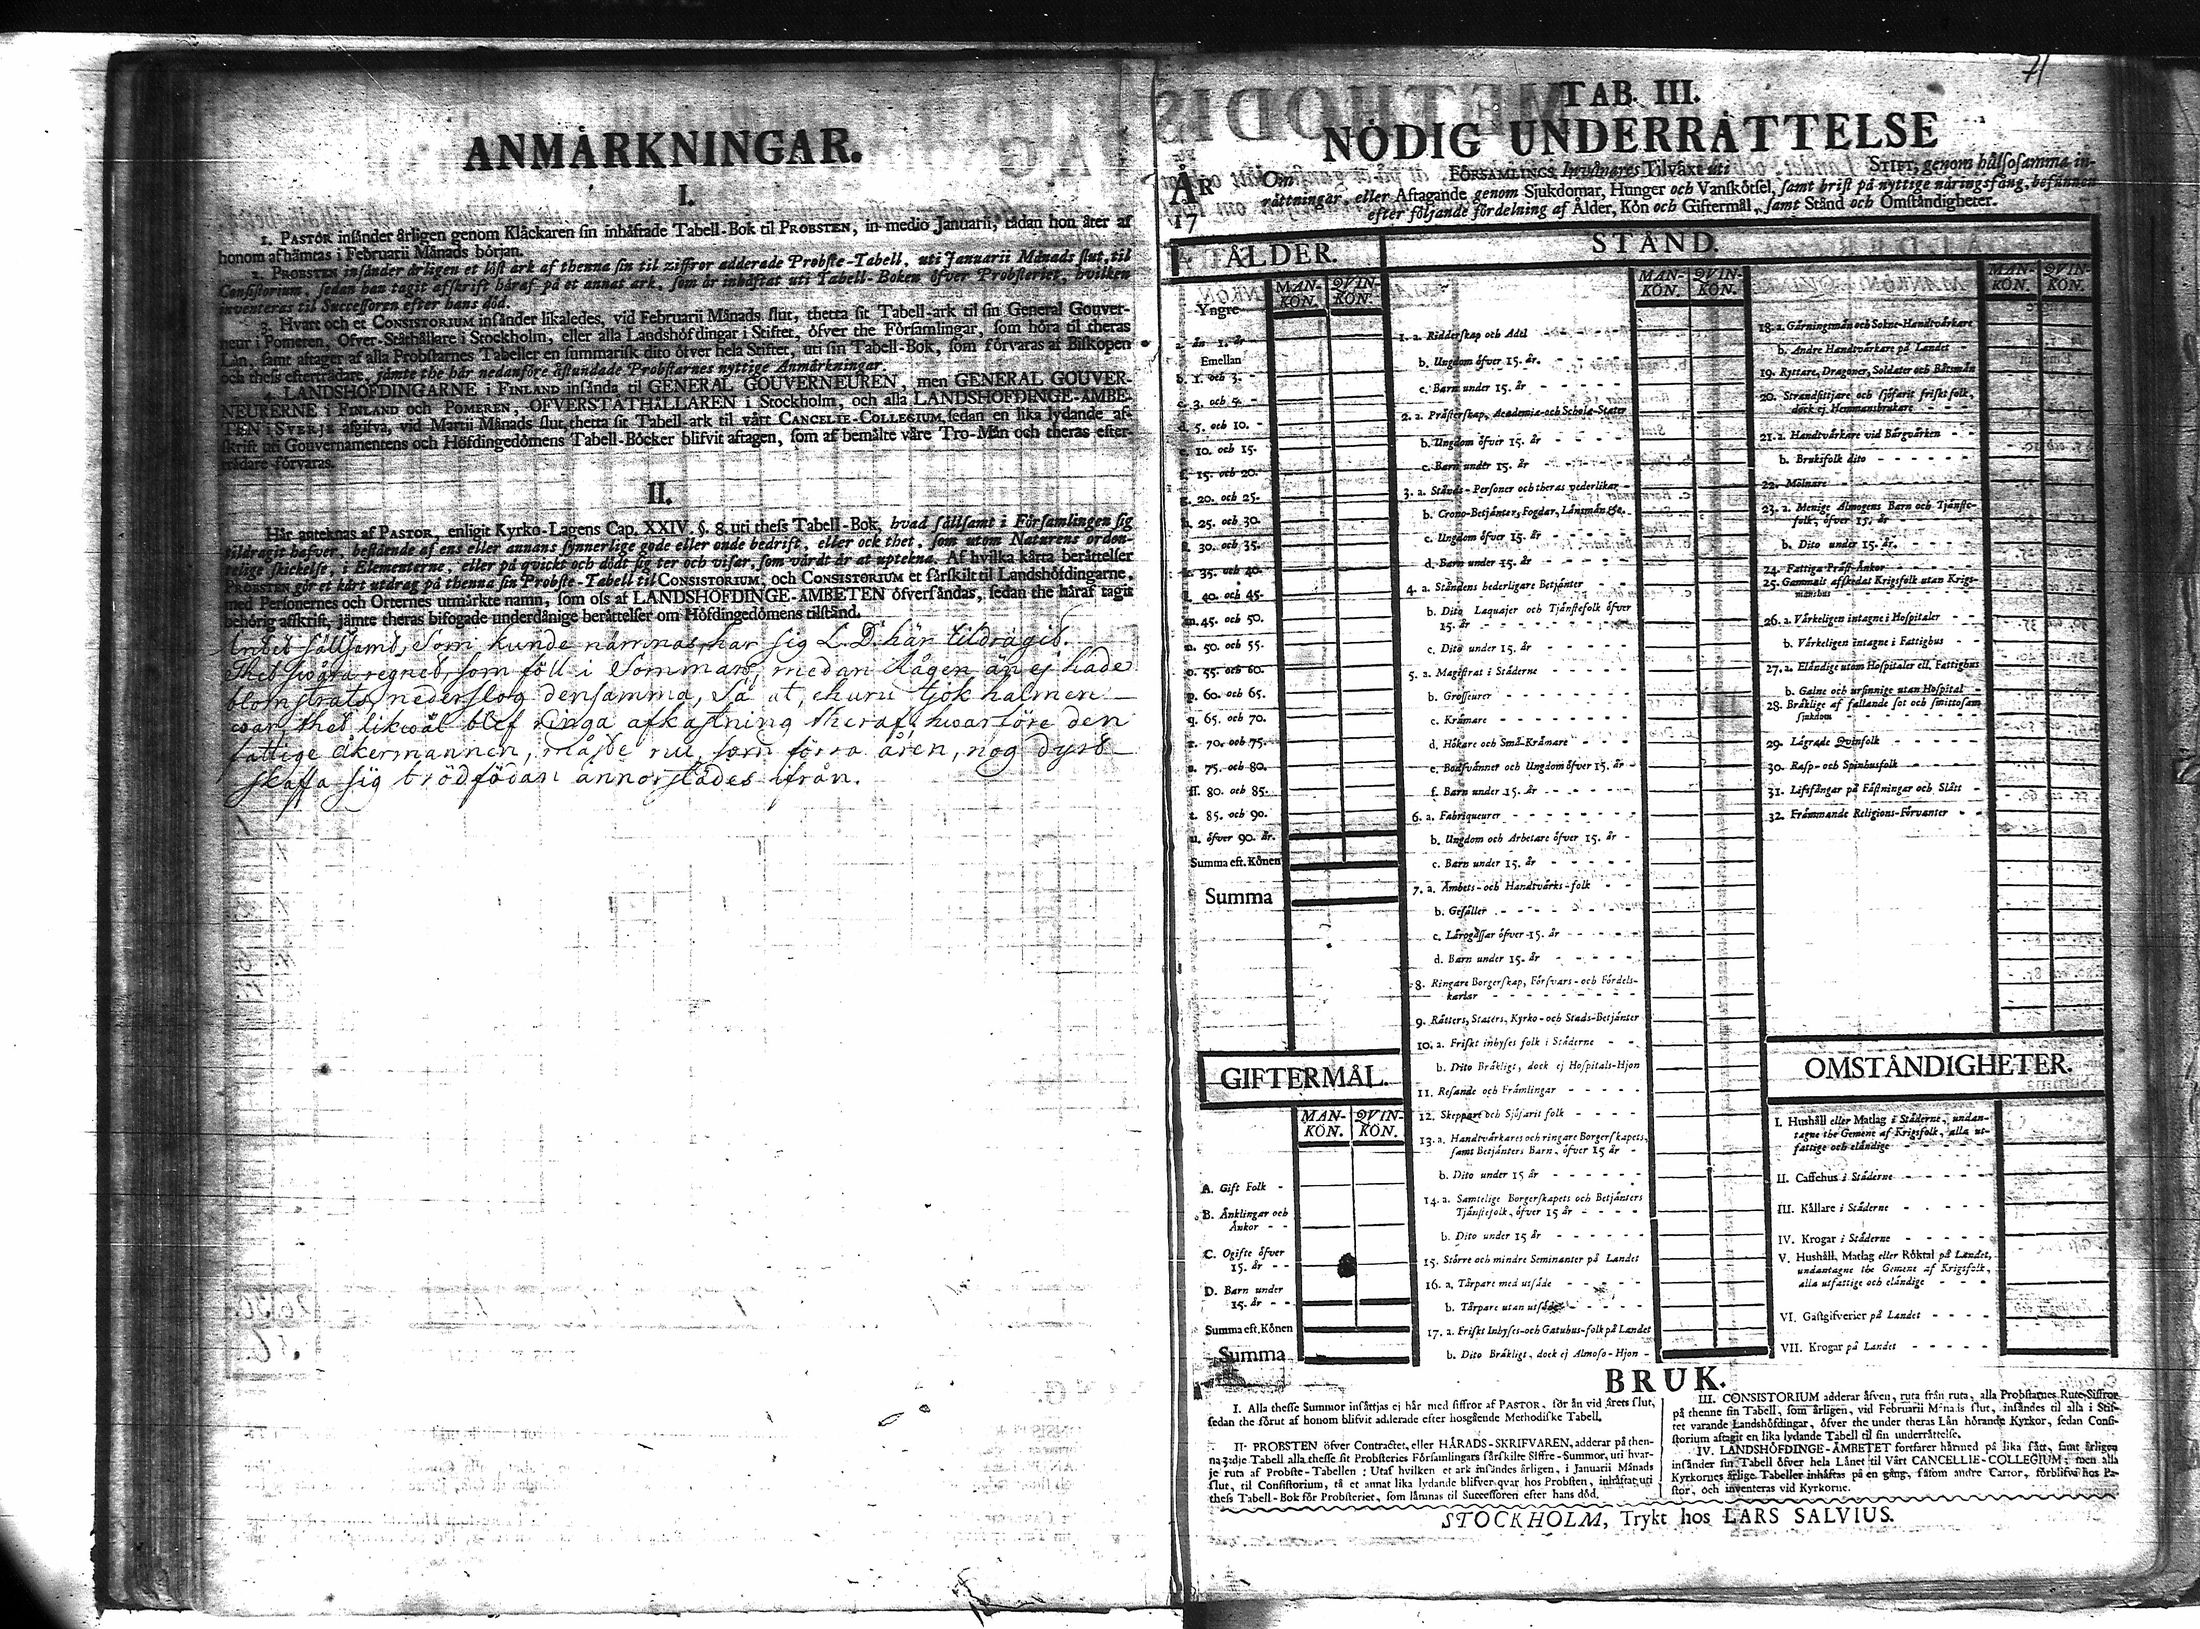 ANMÄRKNINGAR.
I.
1. PASTOR insånder årligen genom Klåckaren sin inhåftade Tabell-Bok til PROBSTEN, in medio Januarii, sådan hon åter af
honom afhämtas i Februarii Månads början.
2. PROBSTEN insånder årligen et löst ark af thenna sin til ziffror adderade Probste-Tabell, uti Januarii Månads slut, til
Consistorium, sedan han tagit afskrift håraf på et annat ark, som år inhåftat uti Tabell-Boken öfver Probsteriet, hvilken
inventeras til Successoren efter hans död.
3. Hvart och et CONSISTORIUM insånder likaledes, vid Februarii Månads slut, thetta sit Tabell-ark til sin General Gouver-
neur i Pomeren, Öfver-Ståthållare i Stockholm, eller alla Landshöfdingar i Stiftet, öfver the Församlingar, som höra til theras
Lån, samt aftager af alla Probstarnes Tabeller en summarisk dito öfver hela Stiftet, uti sin Tabell-Bok, som förvaras af Biskopen
och thess efterträdare, jåmte the hår nedanföre åstundade Probstarnes nyttige Anmårkningar.
4. LANDSHÖFDINGARNE i FINLAND insånda til GENERAL GOUVERNEUREN, men GENERAL GOUVER-
NEURERNE i FINLAND och POMEREN, ÖFVERSTÅTHÅLLAREN i Stockholm, och alla LANDSHÖFDINGE-ÅMBE-
TEN i SVERJE afgifva, vid Martii Månads slut, thetta sit Tabell-ark til vårt CANCELIE-COLLEGIUM, sedan en lika lydande af-
skrift uti Gouvernamentens och Höfdingedömens Tabell-Böcker blifvit aftagen, som af bemälte våre Tro-Mån och theras efter-
trådare förvaras.
II.
Hår anteknas af PASTOR, enligit Kyrko-Lagens Cap. XXIV. §. 8. uti thess Tabell-Bok, hvad sållsamt i Församlingen sig
tildragit hafver, bestående af ens eller annans synnerlige gode eller onde bedrift, eller ock thet, som utom Naturens orden-
telige skickelse, i Elementerne, eller på qvickt och dödt sig ter och visar, som vårdt år at uptekna. Af hvilka kårta beråttelser
PROBSTEN gör et kårt utdrag på thenna sin Probste-Tabell til CONSISTORIUM, och CONSISTORIUM et sårskilt til Landshöfdingarne,
med Personernes och Orternes utmårkte namn, som oss af LANDSHÖFDINGE-ÅMBETEN öfversåndas, sedan the håraf tagit
behörig afskrift, jåmte theras bifogade underdånige beråttelser om Höfdingedömens tilstånd.
Intet sällsamt, som kunde nämnas, har sig L. D. här tildragit.
Thet swåra regnet, som föll i Sommars, medan Rågen än ej hade
blomstrats, nederslog densamma, så at, ehuru tjok halmen
war, thet likwäl blef ringa afkastning theraf, hwarföre den
fattige åkermannen, måste nu, som förra åren, nog dyrt
skaffa sig brödfödan annorstädes ifrån.
71
TAB. III.
NÖDIG UNDERRÅTTELSE
ÅR
17
Om FÖRSAMLINGS Invånares Tilvåxt uti STIFT, genom hålsosamma in-
råttningar, eller Aftagande genom Sjukdomar, Hunger och Vanskötsel, samt brist på nyttige näringsfång, befunnen
efter följande fördelning af Ålder, Kön och Giftermål, samt Stånd och Omståndigheter.
ÅLDER.
MAN-KÖN. QVIN-KÖN.
Yngre
a. ån 1. år
Emellan
b. 1. och 3.
c. 3. och 5.
d. 5. och 10.
e. 10. och 15.
f. 15. och 20.
g. 20. och 25.
h. 25. och 30.
i. 30. och 35.
k. 35. och 40.
l. 40. och 45.
m. 45. och 50.
n. 50. och 55.
o. 55. och 60.
p. 60. och 65.
q. 65. och 70.
r. 70. och 75.
s. 75. och 80.
ss. 80. och 85.
t. 85. och 90.
u. öfver 90. år.
Summa eft. Könen
Summa
GIFTERMÅL.
MAN-KÖN. QVIN-KÖN.
A. Gift Folk
B. Ånklingar och
Ånkor
C. Ogifte öfver
15. år
D. Barn under
15. år
Summa eft. Könen
Summa
STÅND.
MAN-KÖN. QVIN-KÖN.
1. a. Ridderskap och Adel
b. Ungdom öfver 15. år.
c. Barn under 15. år
2. a. Pråsterskap, Academia-och Schola-Stater
b. Ungdom öfver 15. år
c. Barn under 15. år
3. a. Stånds-Personer och theras vederlikar
b. Crono-Betjånter, Fogdar, Lånsmån &c.
c. Ungdom öfver 15. år
d. Barn under 15. år
4. a. Ståndens hederligare Betjånter
b. Dito Laquajer och Tjånstefolk öfver
15. år
c. Dito under 15. år
5. a. Magistrat i Ståderne
b. Grosseurer
c. Kråmare
d. Hökare och Små-Kråmare
e. Bodsvånner och Ungdom öfver 15. år
f. Barn under 15. år
6. a. Fabriqueurer
b. Ungdom och Arbetare öfver 15. år
c. Barn under 15. år
7. a. Åmbets-och Handtvårks-folk
b. Gesåller
c. Lårogåssar öfver 15. år
d. Barn under 15. år
8. Ringare Borgerskap, Försvars-och Fördels-
karlar
9. Råtters, Staters, Kyrko-och Stads-Betjånter
10. a. Friskt inhyses folk i Ståderne
b. Dito Bråkligt, dock ej Hospitals-Hjon
11. Resande och Fråmlingar
12. Skeppare och Sjöfarit folk
13. a. Handtvårkares och ringare Borgerskapets,
samt Betjånters Barn, öfver 15 år
b. Dito under 15 år
14. a. Samtelige Borgerskapets och Betjånters
Tjånstefolk, öfver 15 år
b. Dito under 15 år
15. Större och mindre Seminanter på Landet
16. a. Tårpare med utsåde
b. Tårpare utan utsåde
17. a. Friskt Inhyses-och Gatuhus-folk på Landet
b. Dito Bråkligt, dock ej Almoso-Hjon
MAN-KÖN. QVIN-KÖN.
18. a. Gårningsmån och Sokne-Handtvårkare
b. Andre Handtvårkare på Landet
19. Ryttare, Dragoner, Soldater och Båtsmån
20. Strandsittjare och sjöfarit friskt folk,
dock ej Hemmansbrukare
21. a. Handtvårkare vid Bårgvårken
b. Bruksfolk dito
22. Mölnare
23. a. Menige Almogens Barn och Tjånste-
folk, öfver 15. år
b. Dito under 15. år.
24. Fattiga Pråst-Ånkor
25. Gammalt afskedat Krigsfolk utan Krigs-
manshus
26. a. Vårkeligen intagne i Hospitaler
b. Vårkeligen intagne i Fattighus
27. a. Elåndige utom Hospitaler ell. Fattighus
b. Galne och ursinnige utan Hospital
28. Bråklige af fallande sot och smittosam
sjukdom
29. Lågrade Qvinfolk
30. Rasp- och Spinhusfolk
31. Lifsfångar på Fåstningar och Slått
32. Fråmmande Religions-Förvanter
OMSTÅNDIGHETER.
I. Hushåll eller Matlag i Ståderne, undan-
tagne the Gemene af Krigsfolk, alla ut-
fattige och elåndige
II. Caffehus i Ståderne
III. Kållare i Ståderne
IV. Krogar i Ståderne
V. Hushåll, Matlag eller Röktal på Landet,
undantagne the Gemene af Krigsfolk,
alla utfattige och elåndige
VI. Gastgifverier på Landet
VII. Krogar på Landet
BRUK.
I. Alla thesse Summor insåttjas ej hår med siffror af PASTOR, för ån vid årets slut,
sedan the förut af honom blifvit adderade efter hosgående Methodiske Tabell.
II. PROBSTEN öfver Contractet, eller HÅRADS-SKRIFVAREN, adderar på then-
na 3:dje Tabell alla thesse sit Probsteries Församlingars sårskilte Siffre-Summor, uti hvar-
je ruta af Probste-Tabellen: Utaf hvilken et ark insåndes årligen, i Januarii Månads
slut, til Consistorium, tå et annat lika lydande blifver qvar hos Probsten, inhåftat uti
thess Tabell-Bok för Probsteriet, som låmnas til Successoren efter hans död.
III. CONSISTORIUM adderar åfven, ruta från ruta, alla Probstarnes Rute-Siffror
på thenne sin Tabell, som årligen, vid Februarii Månads slut, insåndes til alla i Stif-
tet varande Landshöfdingar, öfver the under theras Lån hörande Kyrkor, sedan Consi-
storium aftagit en lika lydande Tabell til sin underråttelse.
IV. LANDSHÖFDINGE-ÅMBETET fortfarer hårmed på lika sått, samt årligen
insånder sin Tabell öfver hela Lånet til Vårt CANCELLIE-COLLEGIUM; men alla
Kyrkornes årlige Tabeller inhåftas på en gång, såsom andre Cartor, förblifva hos Pa-
stor, och inventeras vid Kyrkorne.
STOCKHOLM, Trykt hos LARS SALVIUS.